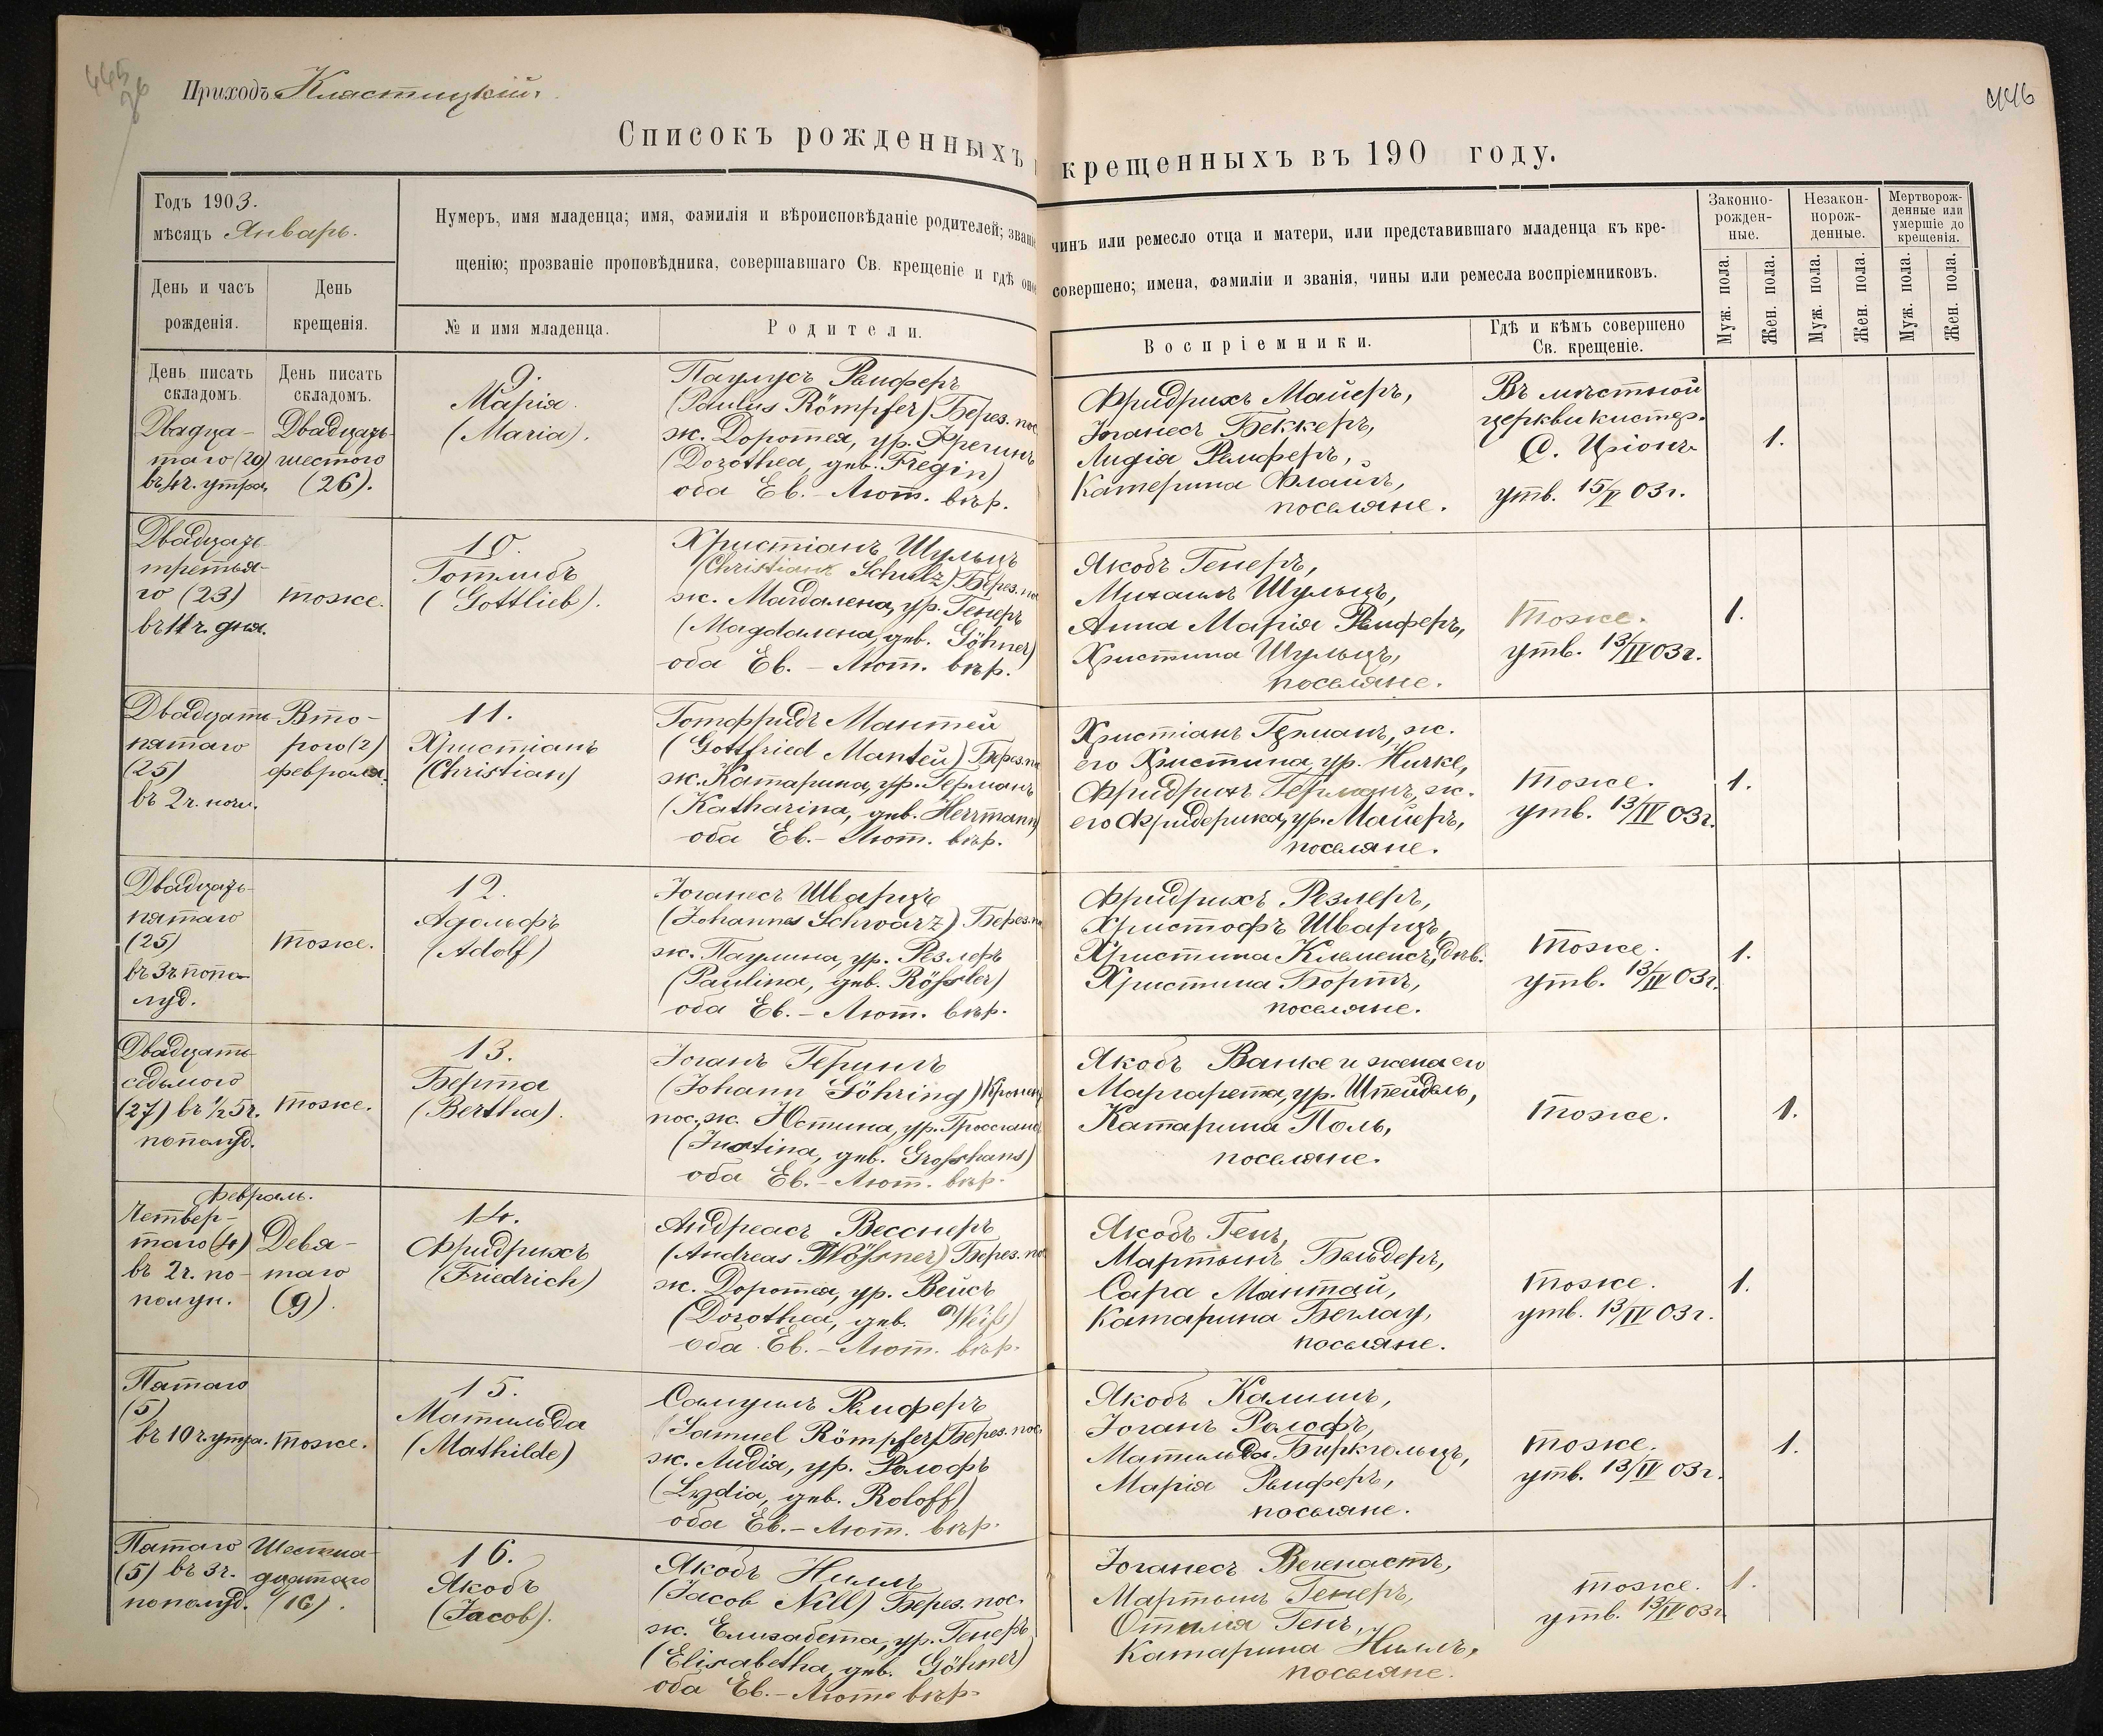 445
Приходъ Кластицкій.
446
Списокъ рожденныхъ
крещенныхъ въ 190 году.
Годъ 1903.
мѣсяцъ Январь.
Нумеръ, имя младенца; имя, фамилія и вѣроисповѣданіе родителей; званіе
щенію; прозваніе проповѣдника, совершавшаго Св. крещеніе и гдѣ оно
чинъ или ремесло отца и матери, или представившаго младенца къ кре-
совершено; имена, фамиліи и званія, чины или ремесла воспріемниковъ.
Законно-
рожден-
ные.
Незакон-
норож-
денные.
Мертворож-
денные или
умершіе до
крещенія.
День и часъ
рожденія.
День
крещенія.
№ и имя младенца.
Родители.
Воспріемники.
Гдѣ и кѣмъ совершено
Св. крещеніе.
Муж. пола.
Жен. пола.
Муж. пола.
Жен. пола.
Муж. пола.
Жен. пола.
День писать
складомъ.
День писать
складомъ.
Двадца-
таго (20)
въ 4 ч. утра.
Двадцать
шестого
(26).
9.
Марія.
(Maria).
Паулусъ Ремпферъ
(Paulus Römpfer) Берез. пос.
ж. Доротея, ур. Фрегинъ
(Dorothea, geb. Fregin)
оба Ев.-Лют. вѣр.
Фридрихъ Майеръ,
Іоганесъ Беккеръ,
Лидія Ремпферъ,
Катерина Флайгъ,
поселяне.
Въ мѣстной
церкви кистер.
утв. 15/V 03 г.
1.
Двадцать
третья-
го (23)
въ 11 ч. дня.
тоже.
10.
Готтлибъ
(Gottlieb).
Христіанъ Шульцъ
(Christian Schulz) Берез. пос.
ж. Магдалена, ур. Генеръ
(Магдалена, geb. Göhner)
оба Ев.-Лют. вѣр.
Якобъ Генеръ,
Михаилъ Шульцъ,
Анна Марія Ремпферъ,
Христина Шульцъ,
поселяне.
тоже.
утв. 13/IV 03 г.
1.
Двадцать
пятаго
(25)
въ 2 ч. ночи.
Вто-
рого (2)
февраля.
11.
Христіанъ
(Christian)
Готфридъ Мантей
(Gottfried Mantей) Берез. пос.
ж. Катарина, ур. Германъ
(Katharina, geb. Herrmann)
оба Ев.-Лют. вѣр.
Христіанъ Германъ, ж.
его Христина, ур. Ничке,
Фридрихъ Германъ, ж.
его Фридерика, ур. Майеръ,
поселяне.
тоже.
утв. 13/IV 03 г.
1.
Двадцать
пятаго
(25)
въ 3 ч. попо-
луд.
тоже.
12.
Адольфъ
(Adolf)
Іоганесъ Шварцъ
(Johannes Schwarz) Берез. пос.
ж. Паулина, ур. Резлеръ
(Paulina, geb. Rößler)
оба Ев.-Лют. вѣр.
Фридрихъ Резлеръ,
Христофъ Шварцъ,
Христина Клеменсъ, дѣв.
Христина Бортъ,
поселяне.
тоже.
утв. 13/IV 03 г.
1.
Двадцать
седьмого
(27) въ ½ 5 ч.
пополуд.
тоже.
13.
Берта
(Bertha).
Іоганъ Герингъ
(Johann Göhring)
пос. ж. Юстина, ур. Гросгансъ
(Justina, geb. Großhans)
оба Ев.-Лют. вѣр.
Якобъ Ванке и жена его
Маргарета, ур. Шпейдель,
Катарина Поль,
поселяне.
тоже.
1.
Февраль.
Четвер-
таго (4)
въ 2 ч. по-
полун.
Девя-
таго
(9).
14.
Фридрихъ
(Friedrich)
Андреасъ Весснеръ
(Andreas Wößner) Берез. пос.
ж. Доротея, ур. Вейсъ
(Dorothea, geb. Weiß)
оба Ев.-Лют. вѣр.
Якобъ Генъ,
Мартынъ Бельдеръ,
Сара Мантай,
Катарина Беглау,
поселяне.
тоже.
утв. 13/IV 03 г.
1.
Пятаго
(5)
въ 10 ч. утра.
тоже.
15.
Матильда
(Mathilde)
Самуилъ Ремпферъ
(Samuel Römpfer) Берез. пос.
ж. Лидія, ур. Ролофъ
(Lydia, geb. Roloff)
оба Ев.-Лют. вѣр.
Якобъ Калишъ,
Іоганъ Ролофъ,
Матильда Биркгольцъ,
Марія Ремпферъ,
поселяне.
тоже.
утв. 13/IV 03 г.
1.
Пятаго
(5) въ 3 ч.
пополуд.
Шестна-
дцатаго
(16).
16.
Якобъ
(Jacob).
Якобъ Нилль
(Jacob Nill) Берез. пос.
ж. Елизабета, ур. Генеръ
(Elisabetha, geb. Göhner)
оба Ев.-Лют. вѣр.
Іоганесъ Вегнастъ,
Мартынъ Генеръ,
Отилія Генъ,
Катарина Нилль,
поселяне.
тоже.
утв. 13/IV 03 г.
1.